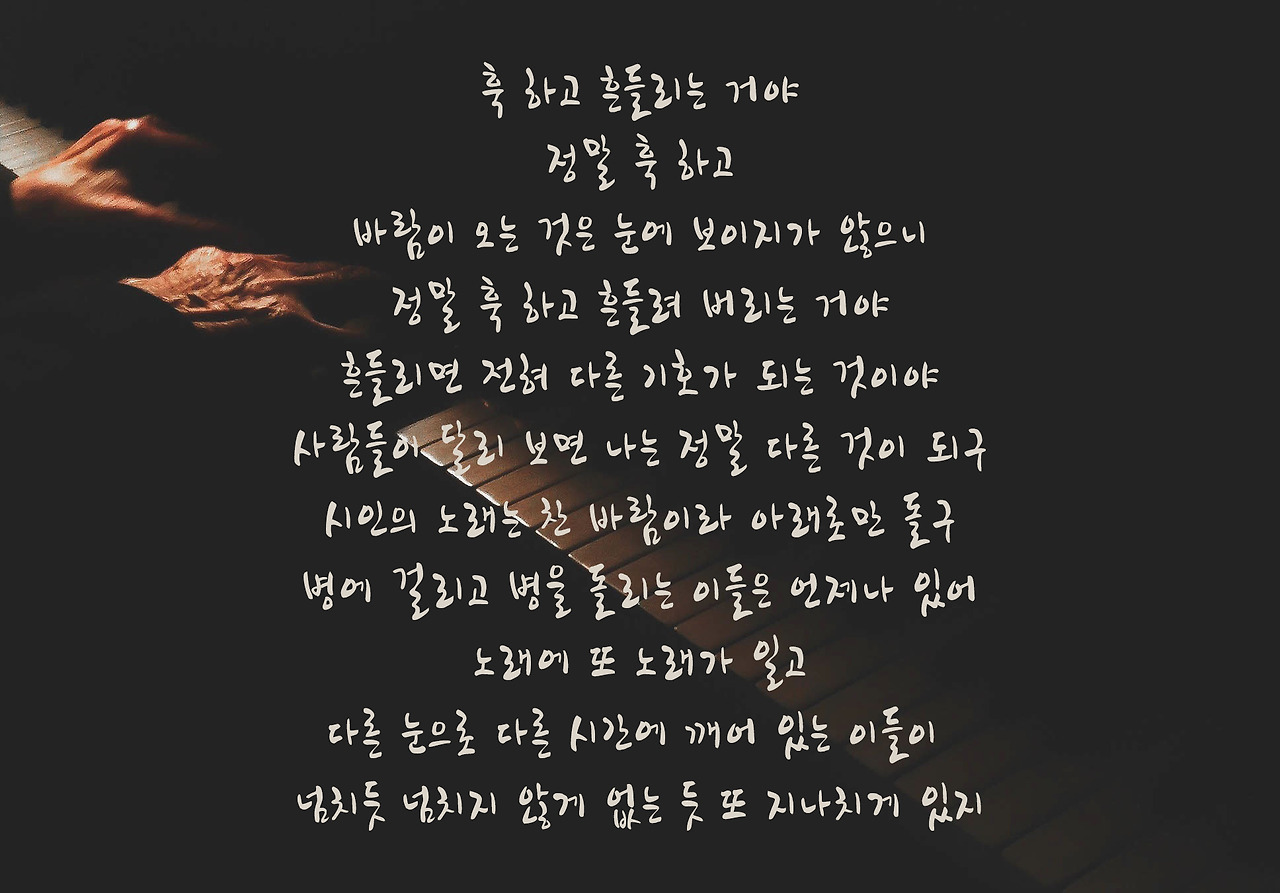 훅 하고 흔들리는 거야
정말 훅 하고
바람이 오는 것은 눈에 보이지가 않으니
정말 훅 하고 흔들려 버리는 거야
흔들리면 전혀 다른 기호가 되는 것이야
사람들이 달리 보면 나는 정말 다른 것이 되구
시인의 노래는 찬 바람이라 아래로만 돌구
병에 걸리고 병을 돌리는 이들은 언제나 있어
노래에 또 노래가 일고
다른 눈으로 다른 시간에 깨어 있는 이들이
넘치듯 넘치지 않게 없는 듯 또 지나치게 있지